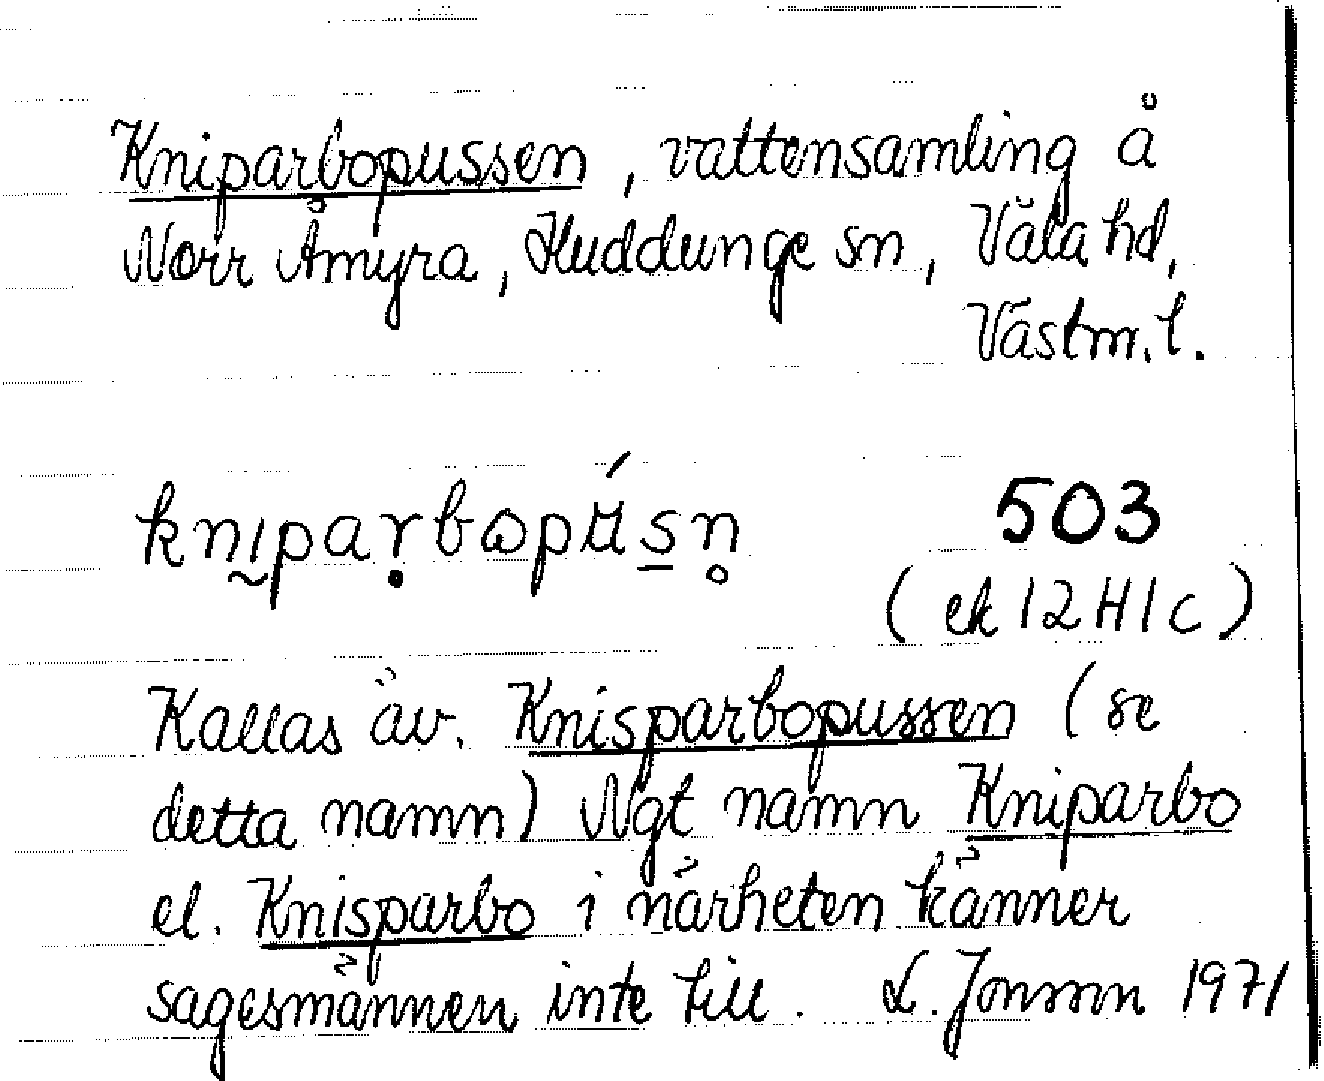 Kniparbopussen, vattensamling å
Norr Åmyra, Huddunge sn, Våla hd,
Västm. l.
503
(ek 12 H 1 c)
Kallas äv. Knisparbopussen (se
detta namn) Ngt namn Kniparbo
el. Knisparbo i närheten känner
sagesmännen inte till. L. Jonsson 1971